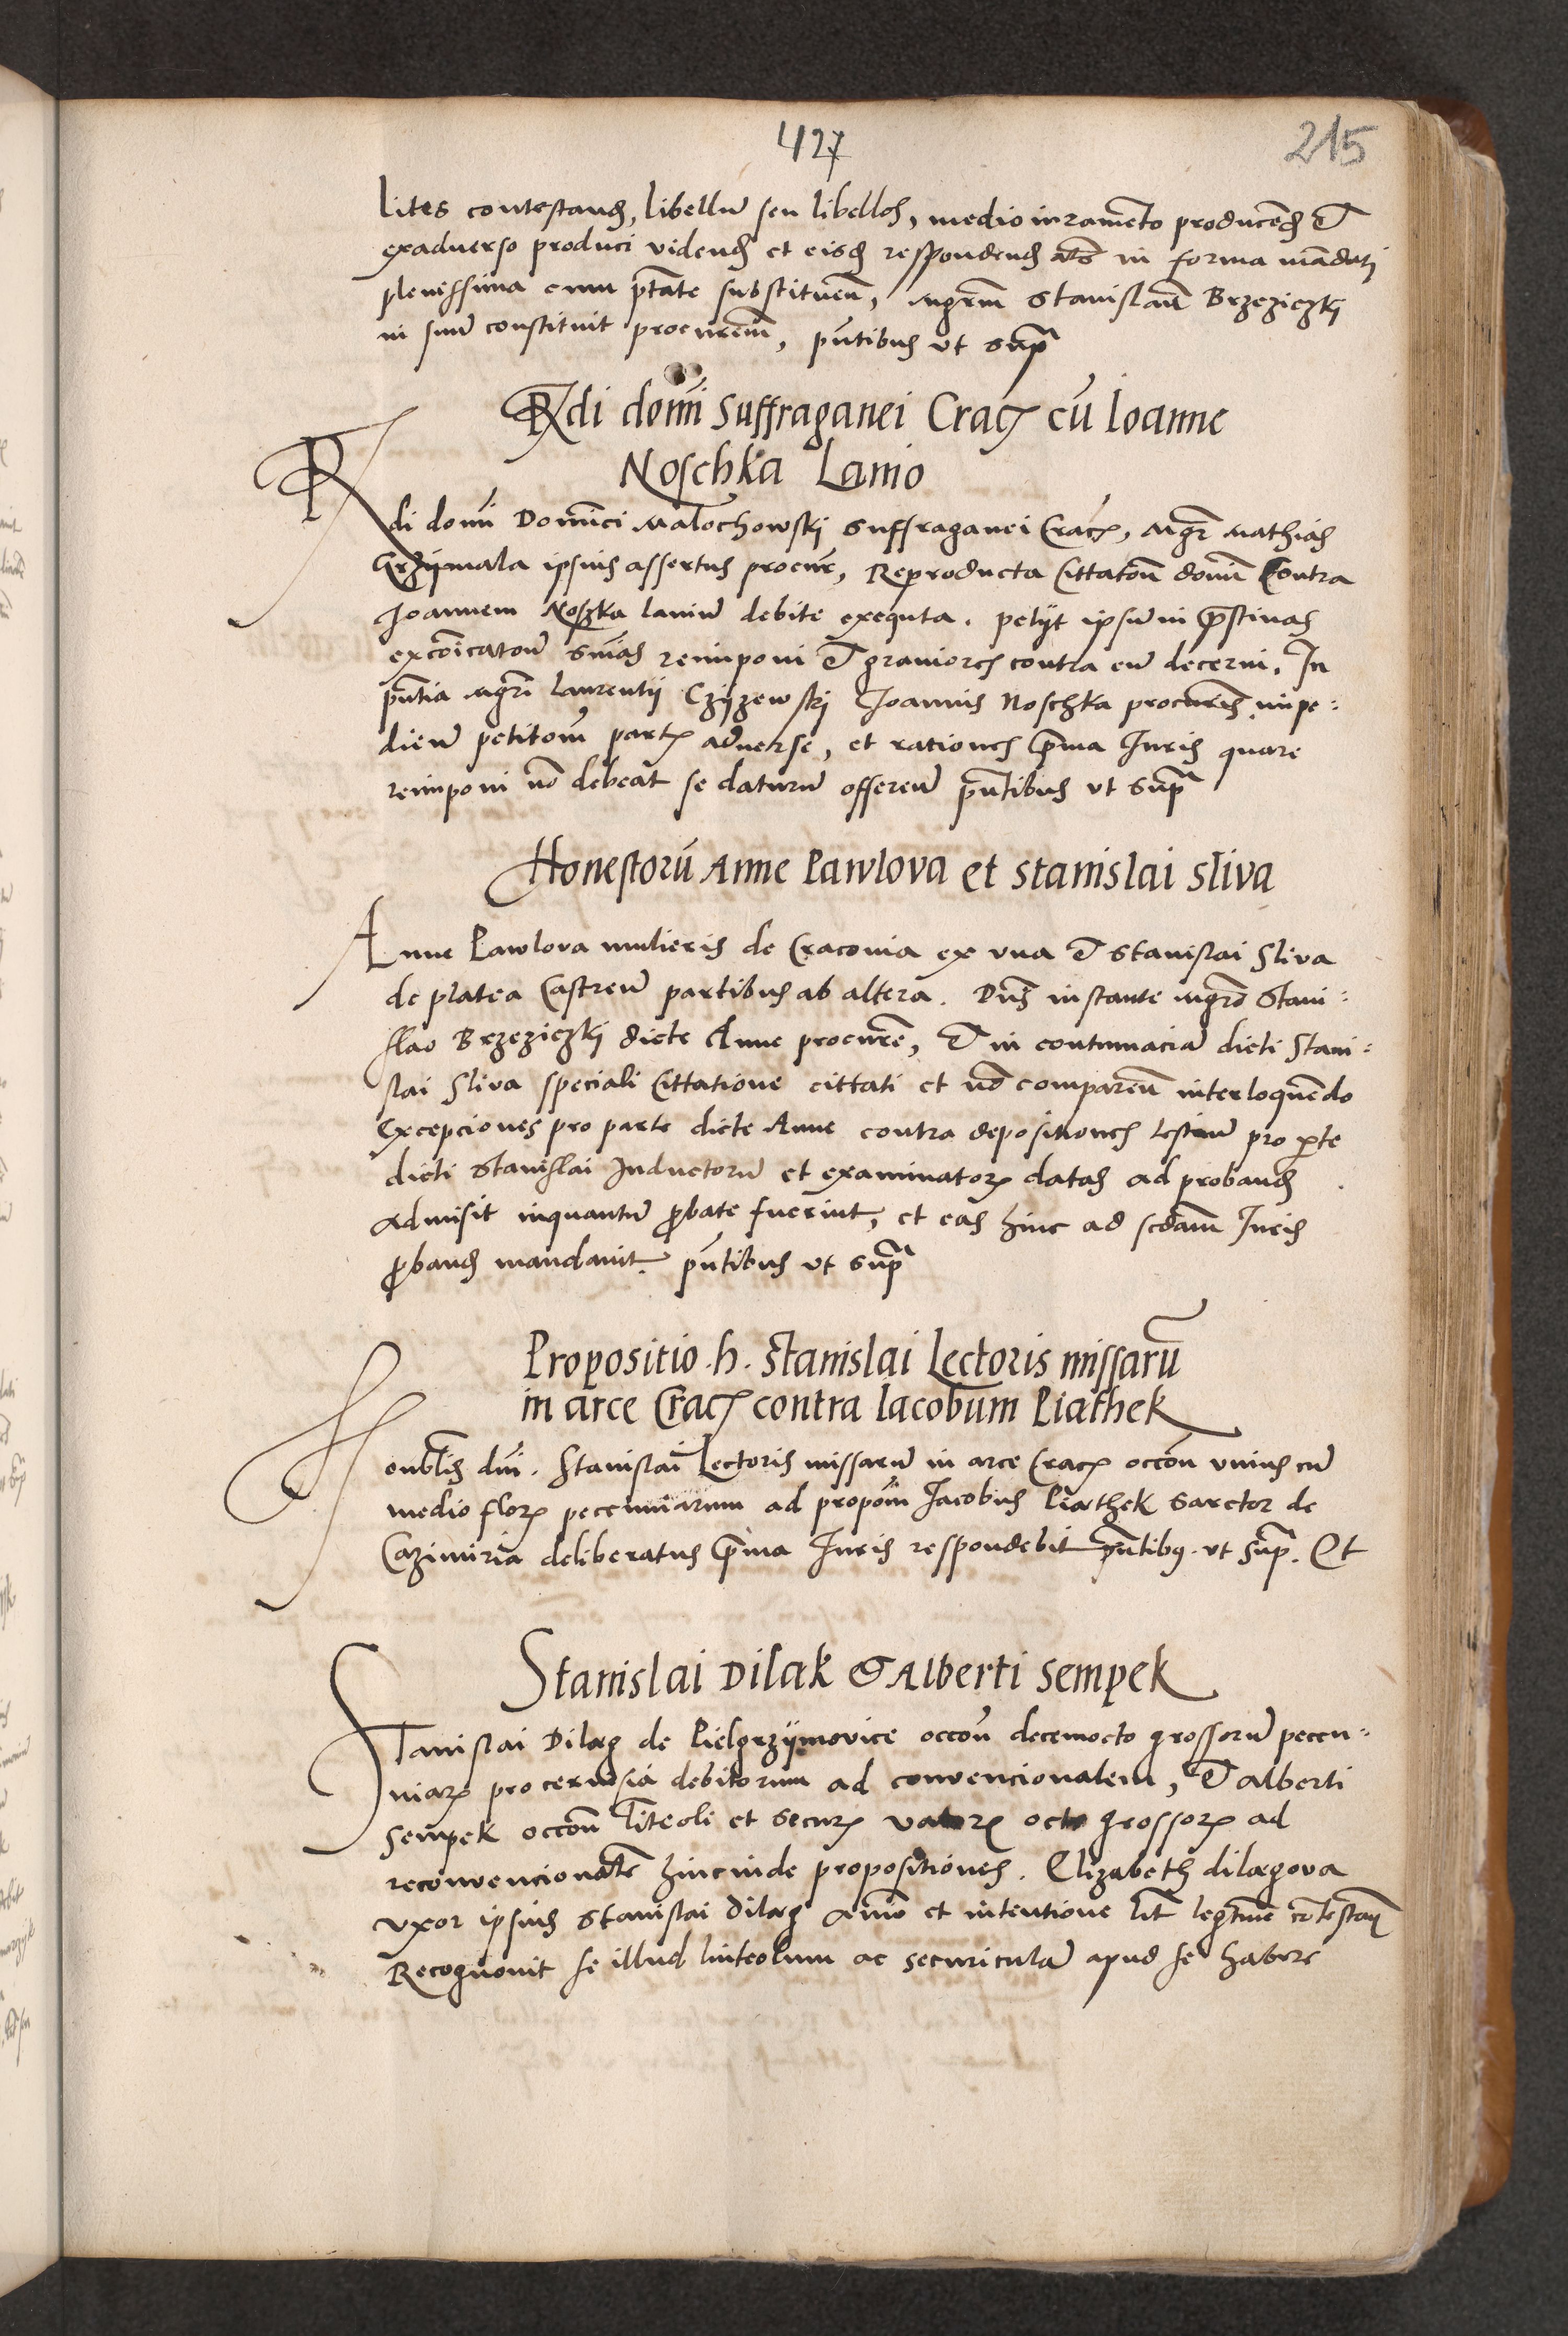 427
215
lites contestand, libellu seu libellos, medio iuramento producend &
exaduerso produci vidend et eisd respondend als in forma mandati
plenissima cum ptate substituen, Mgrm Stanislau Brzeziczkj
in suu constituit procurem, pntibus vt supra
Rdi domi Suffraganei Crac cu Ioanne
Noschka Lanio
Rdi domi Domici Malochowskj Suffraganei Crac, Mgr Mathias
Grzÿmala ipsius assertus procur, Reproducta Cittatou domi Contra
Joannem Noszka laniu debite exequta. petÿt ipsu in pristinas
excoicatou snias reimponi & graviores contra eu decerni. In
pntia Mgri Laurentij Czÿzewskj Joannis Noschka procuris impe:
dien petitom partis aduerse, et rationes prima Juris quare
reimponi no debeat se daturu offeren pntibus vt supra
Honestoru Anne Pawlova et Stanislai Sliva
Anne Pawlova mulieris de Cracouia ex vna & Stanislai Sliva
de platea Castren partibus ab altera. Dns instante Mgro Stani:
slao Brzeziczkj dicte Anne procure, & in contumacia dicti Stani:
slai Sliva speciali Cittatione cittati et no comparen interloquendo
Excepciones pro parte dicte Anne contra depositiones testiu pro parte
dicti Stanislai Inductoru et examinator datas ad proband
admisit inquantu probate fuerint, et eas hinc ad scdam Juris
proband mandauit. pntibus vt supra
Propositio .h. Stanislai Lectoris missaru
in arce Crac contra Iacobum Piathek
Honoblis dni. Stanislai Lectoris missaru in arce Crac occon vnius cu
medio flor pecuniarum ad propom Jacobus Piathek Sarctor de
Cazimiria deliberatus prima Juris respondebit pntibus vt supra. Et
Stanislai Dilak & Alberti Sempek
Stanislai Dilag de Pielgrzÿmovice occon decemocto grossoru pecu:
niar pro cervisia debitorum ad convencionalem, & Alberti
Sempek occon linteoli et secur valor octo grossor ad
reconvencionale hincinde propositiones. Elizabeth dilagova
vxor ipsius Stanislai Dilag animo et intentione lit legtime contestan
Recognouit se illud linteolum ac securicula apud se habere